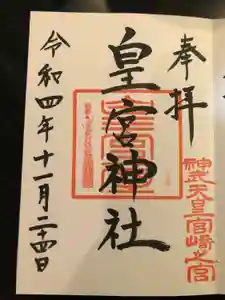 奉拝
神武天皇宮崎之宮
皇宮神社
令和四年十一月二十四日